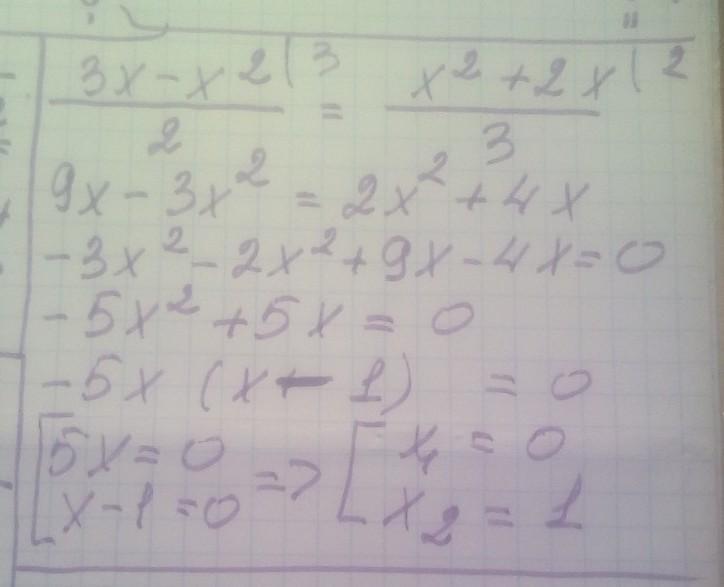 3x - x² | 3 = x² + 2x | 2
2 3
9x - 3x² = 2x² + 4x
-3x² - 2x² + 9x - 4x = 0
-5x² + 5x = 0
-5x (x - 1) = 0
[ 5x = 0 => [ x₁ = 0
x - 1 = 0 x₂ = 1